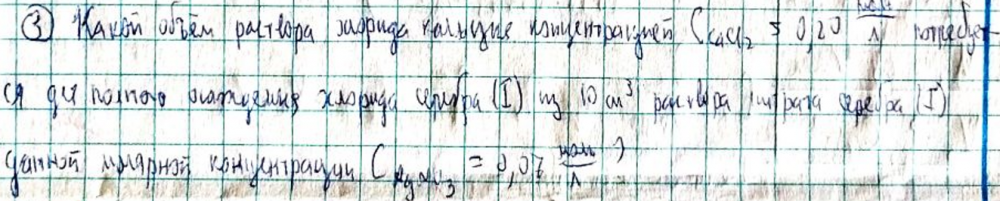 ③ Какой объём раствора хлорида кальция концентрацией C CaCl₂ = 0,20 моль/л потребует-
ся для полного осаждения хлорида серебра (I) из 10 см³ раствора нитрата серебра (I)
данной молярной концентрации C AgNO₃ = 0,07 моль/л ?